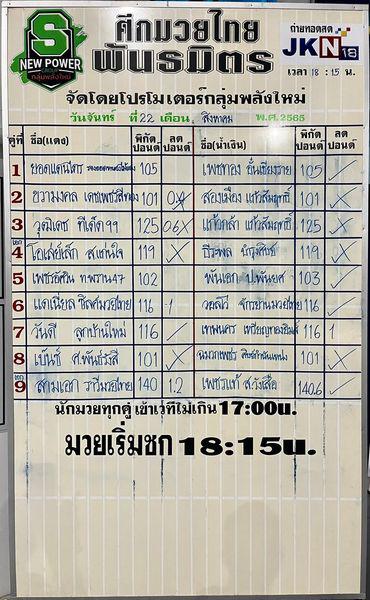 S
NEW POWER
กลุ่มพลังใหม่
ศึกมวยไทย
พันธมิตร
ถ่ายทอดสด
JKN18
เวลา 18 : 15 น.
จัดโดยโปรโมเตอร์กลุ่มพลังใหม่
วันจันทร์ ที่ 22 เดือน สิงหาคม พ.ศ. 2565
คู่ที่ ชื่อ(แดง) พิกัดปอนด์ ลดปอนด์ ชื่อ(น้ำเงิน) พิกัดปอนด์ ลดปอนด์
1 ยอดแดนไตร 105 เพชรทอง 105
2 ขวามงคล 101 สองเมือง แก้วสัมฤทธิ์ 101
3 วุฒิเดช ทีเด็ด99 125 แก้วกล้า แก้วสัมฤทธิ์ 125
4 โอเล่ย์เล็ก ส.แก่นใจ 119 ธีรพล 119
5 เพชรอัศวิน ท.พราน47 102 พันเอก ป.พันยศ 103
6 แดเนียล ซิลค์มวยไทย 116 1 วอลโว่ จักรยานมวยไทย 116
7 วันดี ลูกบ้านใหม่ 116 เทพนคร 116 1
8 เบ้นซ์ ศ.พันธ์รังสี 101 101
9 สามเอก ราวีมวยไทย 140 1.2 เพชรแท้ ส.วังเสือ 140.6
นักมวยทุกคู่ เข้าเวทีไม่เกิน 17:00น.
มวยเริ่มชก 18:15น.